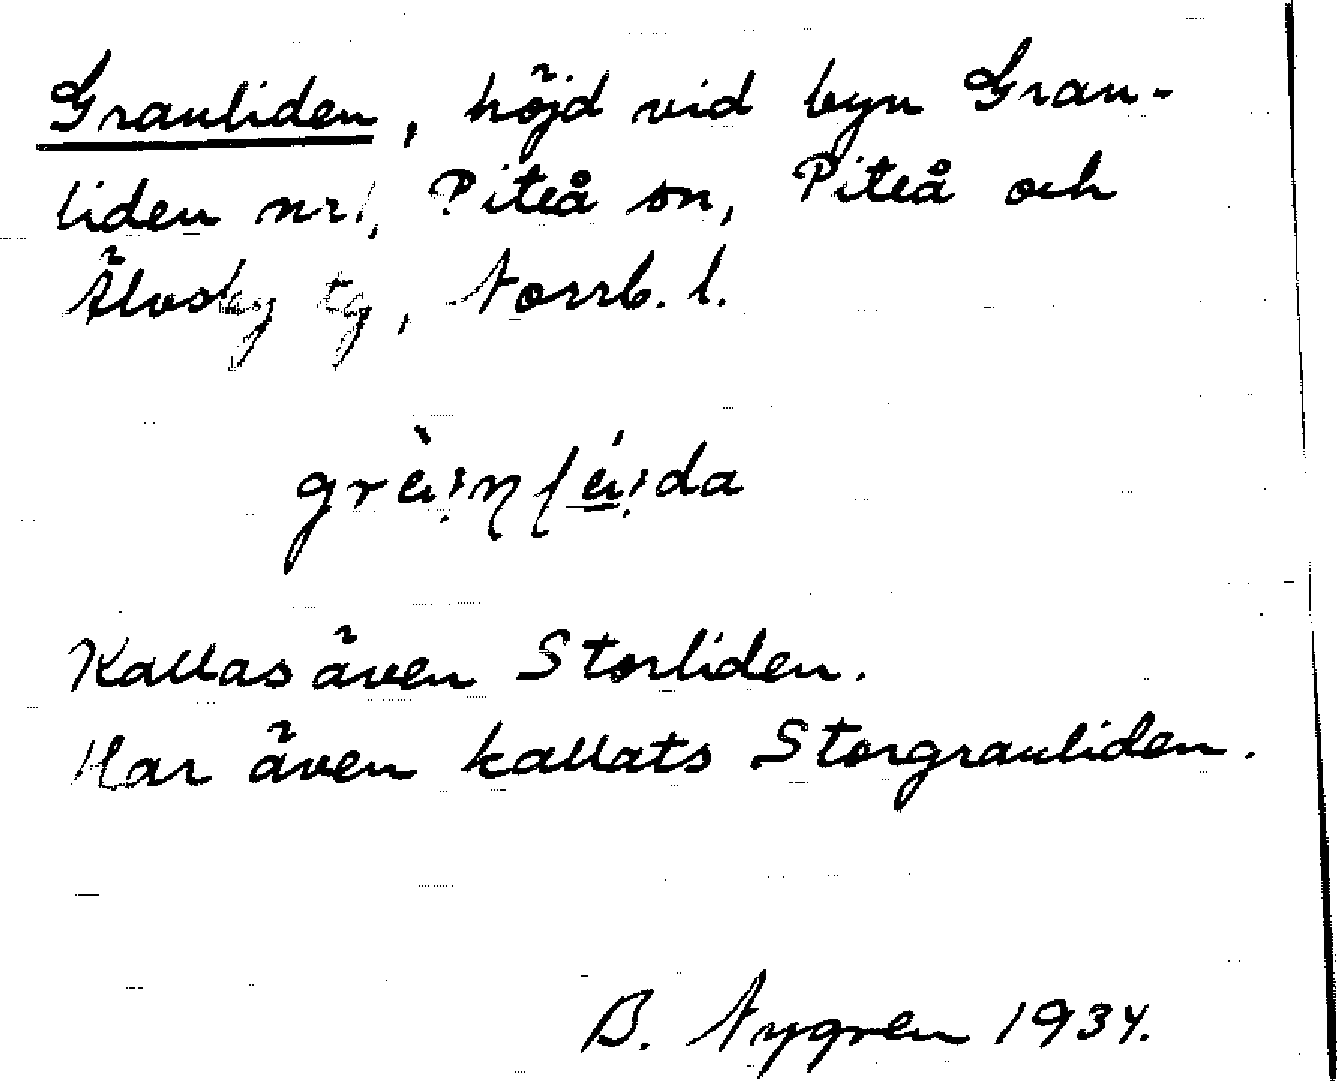 Granliden, höjd vid byn Gran-
liden nr 1, Piteå sn, Piteå och
Älvsby tg, Norrb. l.
Kallas även Storliden.
Har även kallats Storgranliden.
B. Nygren 1934.